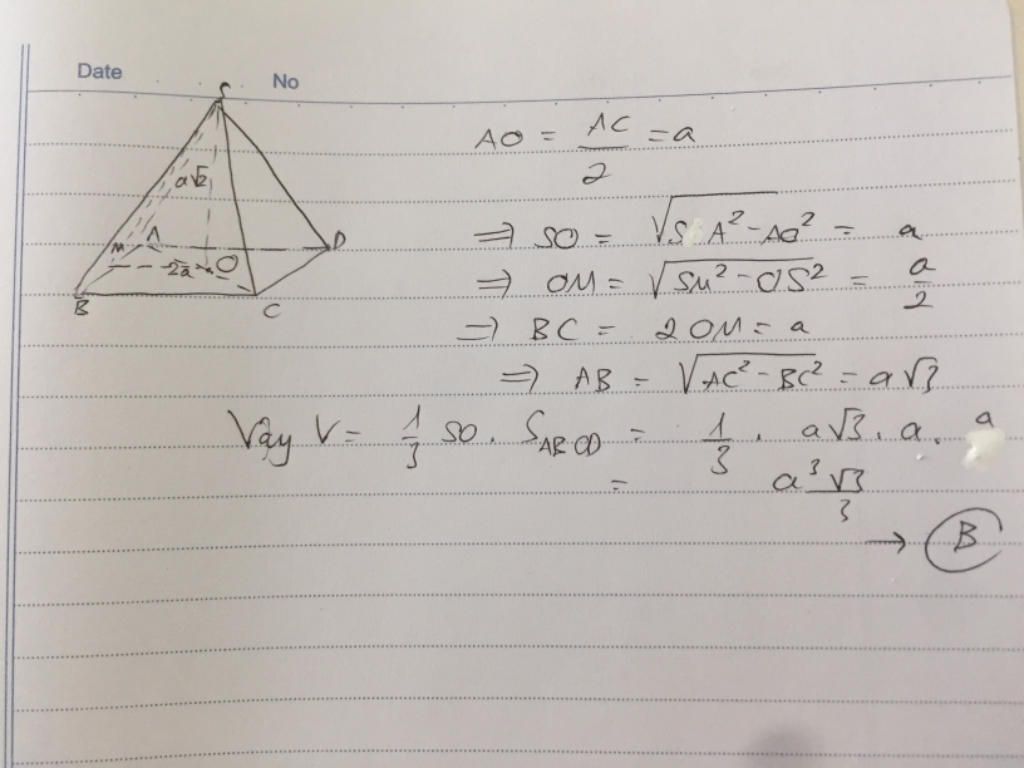 Date No
S
a√2
M A D
2a O
B C
AO = AC/2 = a
⇒ SO = √(SA² - AO²) = a
⇒ OM = √(SM² - OS²) = a/2
⇒ BC = 2OM = a
⇒ AB = √(AC² - BC²) = a√3
Vậy V = 1/3 SO . S_ABCD = 1/3 . a√3 . a . a
= a³√3/3
→ B